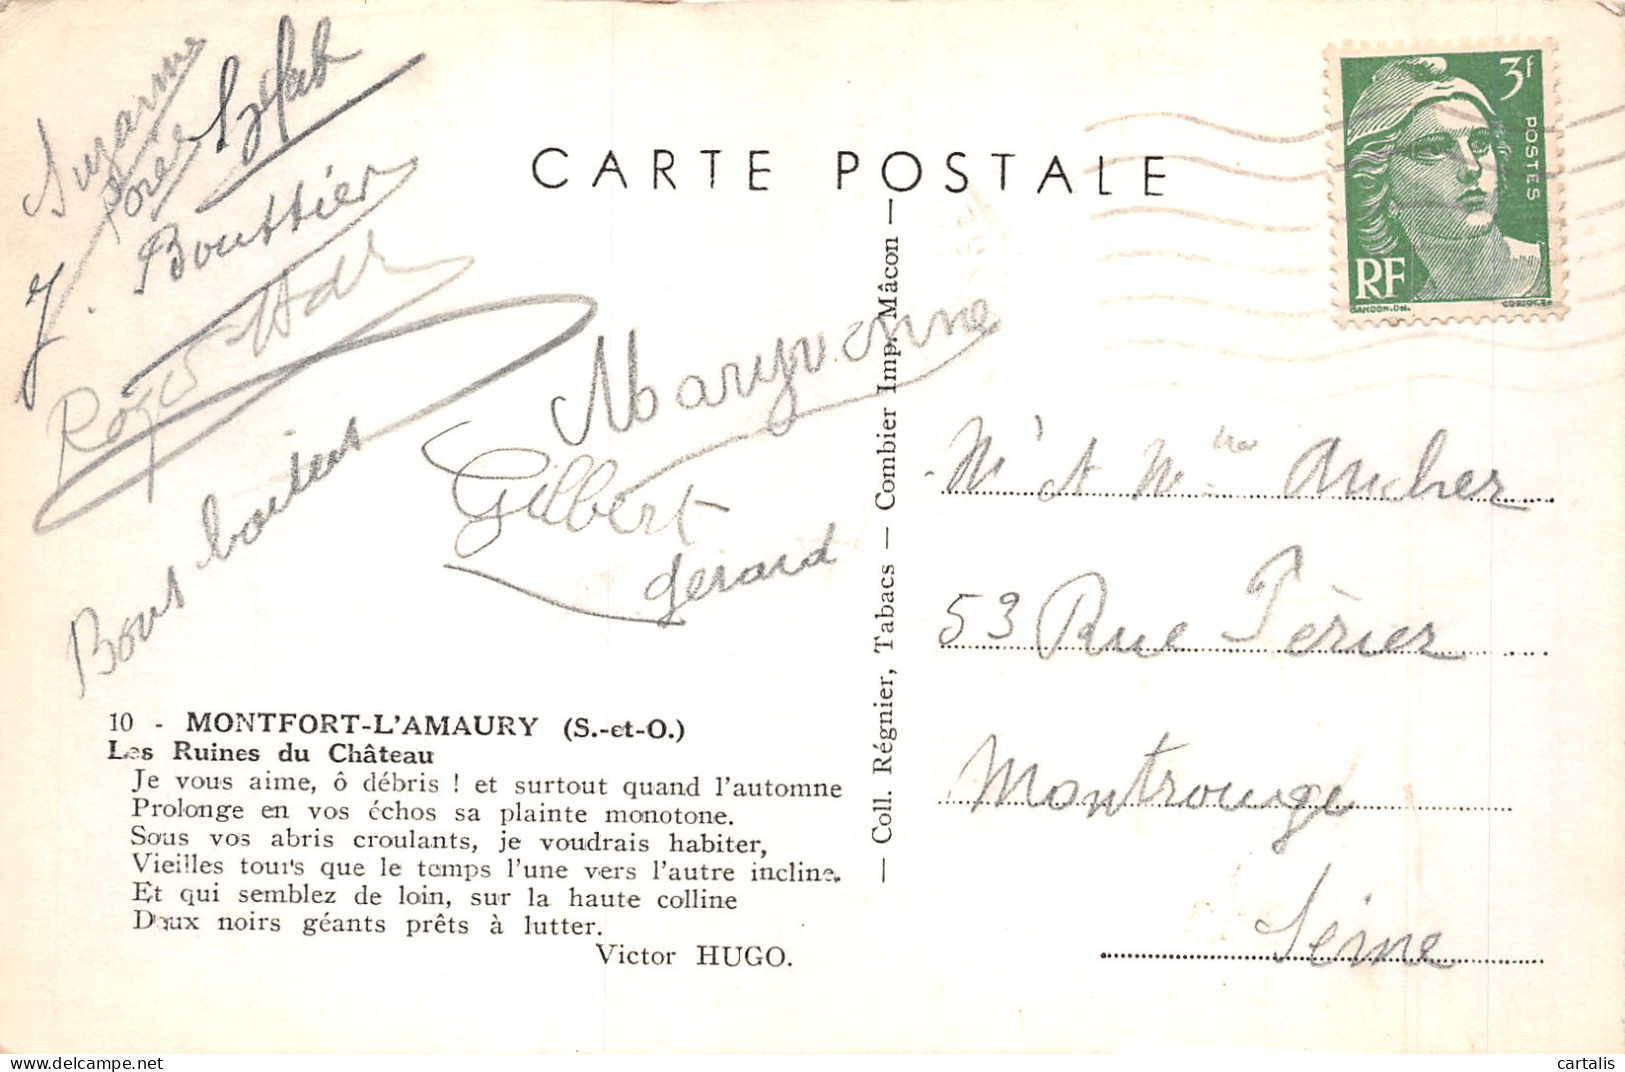 CARTE POSTALE
3f
POSTES
RF
GANDON.DEL.
Suzanne
J. Bouttier
Roger
Bons baisers
Maryvonne
Gilbert
Gérard
10 - MONTFORT-L'AMAURY (S.-et-O.)
Les Ruines du Château
Je vous aime, ô débris ! et surtout quand l'automne
Prolonge en vos échos sa plainte monotone.
Sous vos abris croulants, je voudrais habiter,
Vieilles tours que le temps l'une vers l'autre incline.
Et qui semblez de loin, sur la haute colline
Deux noirs géants prêts à lutter.
Victor HUGO.
— Coll. Régnier, Tabacs — Combier Imp. Mâcon —
Mr et Mme Ancher
53 Rue Périer
Montrouge
Seine
cartalis